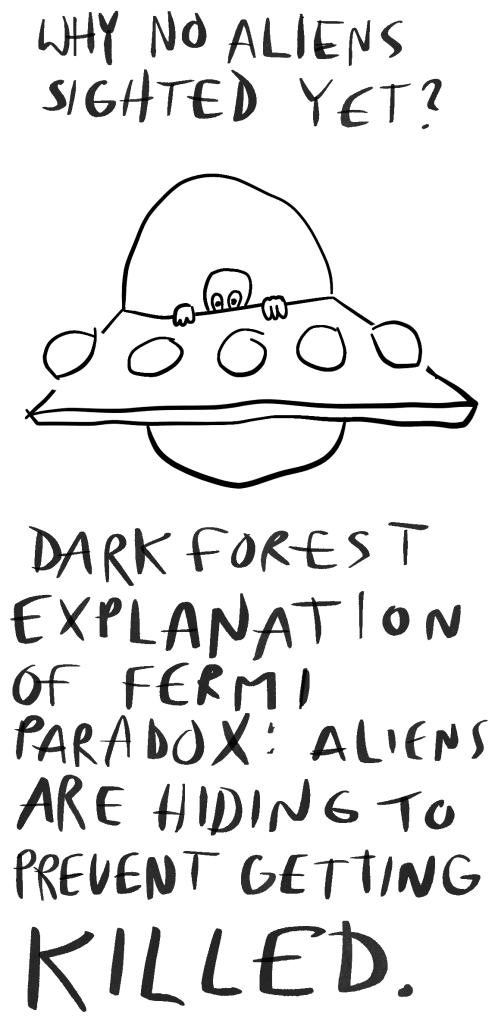 WHY NO ALIENS
SIGHTED YET?
DARK FOREST
EXPLANATION
OF FERMI
PARADOX: ALIENS
ARE HIDING TO
PREVENT GETTING
KILLED.